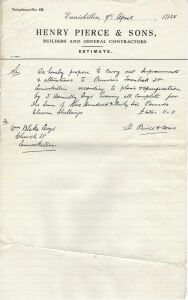 Telephone No. 128.
Enniskillen, 9th April 1938
HENRY PIERCE & SONS,
BUILDERS AND GENERAL CONTRACTORS
ESTIMATE.
Sir We hereby propose to carry out Improvements
& alterations to Premises Townhall St
Enniskillen according to plans & specification
by J. Donnelly Esqr leaving all complete for
the Sum of Hundred & Sixty Six Pounds
Eleven Shillings 11-0
H Pierce & Sons
To
Wm Blake Esqr
Church St
Enniskillen